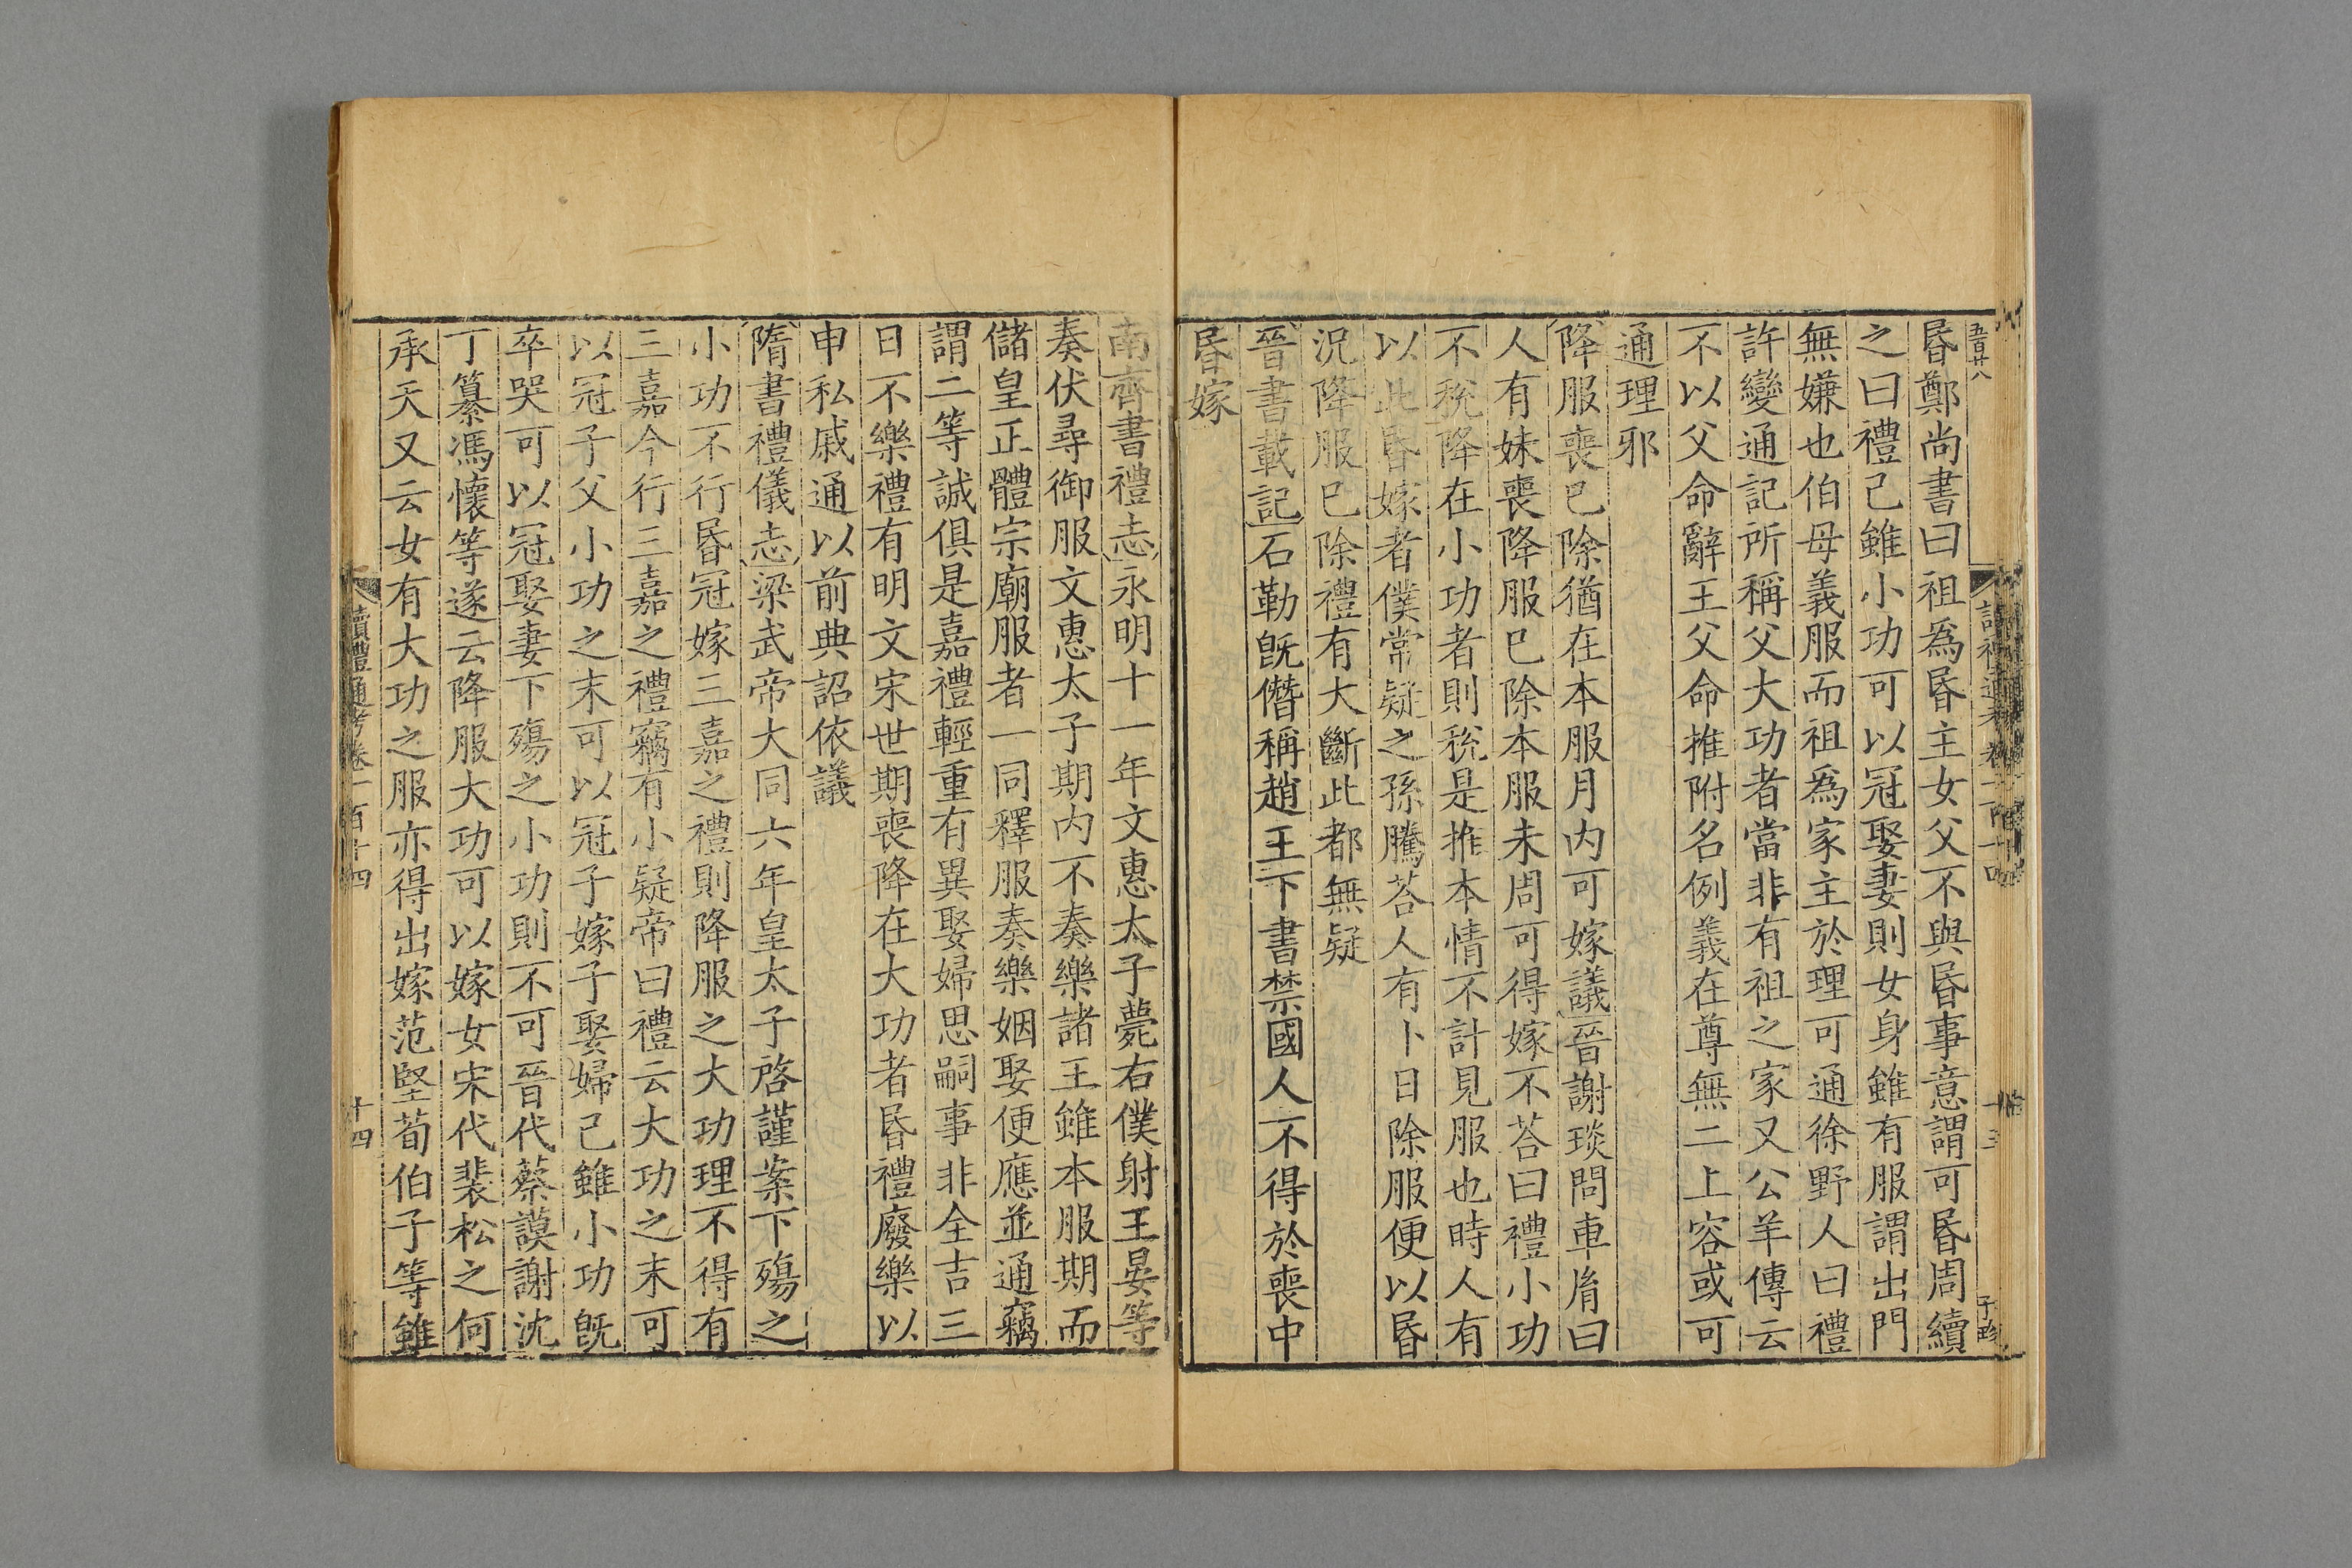 五百廿八
昬鄭尚書曰祖爲昬主女父不與昬事意謂可昬周續
之曰禮己雖小功可以冠娶妻則女身雖有服謂出門
無嫌也伯母義服而祖爲家主於理可通徐野人曰禮
許變通記所稱父大功者當非有祖之家又公羊傳云
不以父命辭王父命推附名例義在尊無二上容或可
通理邪
降服喪巳除猶在本服月内可嫁議晉謝琰問車胤曰
人有妹喪降服巳除本服未周可得嫁不荅曰禮小功
不稅降在小功者則稅是推本情不計見服也時人有
以此昬嫁者僕常疑之孫騰荅人有卜日除服便以昬
況降服巳除禮有大斷此都無疑
晉書載記石勒旣僭稱趙王下書禁國人不得於喪中
昬嫁
南齊書禮志永明十一年文惠太子薨右僕射王晏等
奏伏尋御服文惠太子期内不奏樂諸王雖本服期而
儲皇正體宗廟服者一同釋服奏樂姻娶便應並通竊
謂二等誠俱是嘉禮輕重有異娶婦思嗣事非全吉三
日不樂禮有明文宋世期喪降在大功者昬禮廢樂以
申私戚通以前典詔依議
隋書禮儀志梁武帝大同六年皇太子啓謹案下殤之
小功不行昬冠嫁三嘉之禮則降服之大功理不得有
三嘉今行三嘉之禮竊有小疑帝曰禮云大功之末可
以冠子父小功之末可以冠子嫁子娶婦己雖小功旣
卒哭可以冠娶妻下殤之小功則不可晉代蔡謨謝沈
丁纂馮懷等遂云降服大功可以嫁女宋代裴松之何
承天又云女有大功之服亦得出嫁范堅荀伯子等雖
讀禮通考卷一百十四
十四